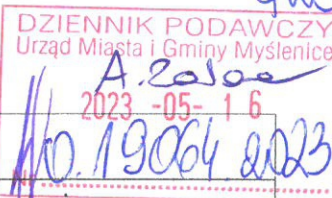 DZIENNIK PODAWCZY
Urząd Miasta i Gminy Myślenice
2023 -05- 16
Nr 19064.2023